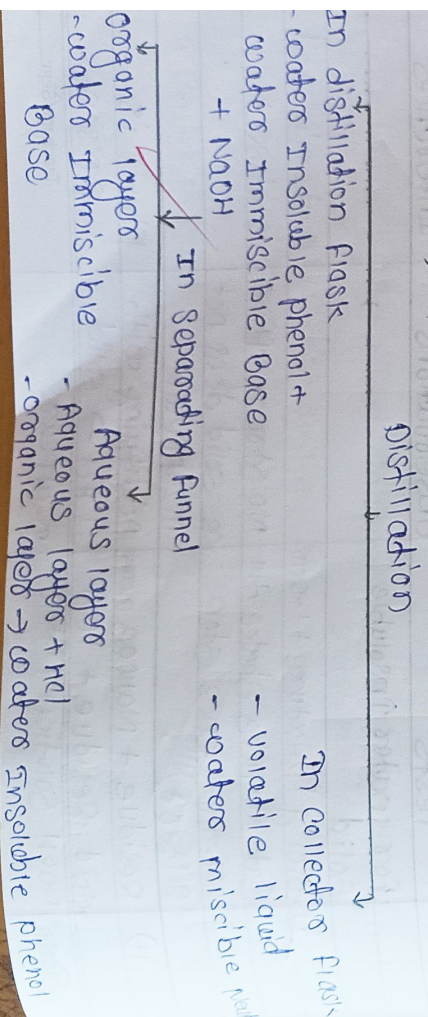 Distillation
In distillation flask
- water Insoluble phenol +
water Immiscible Base
+ NaOH
In Collector flask
- volatile liquid
- water miscible
In Separating funnel
Organic layer
- water Immiscible
Base
Aqueous layer
- Aqueous layer + HCl
- Organic layer → water Insoluble phenol